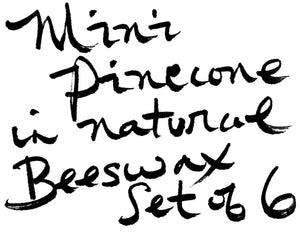 Mini
pinecone
in natural
Beeswax
Set of 6